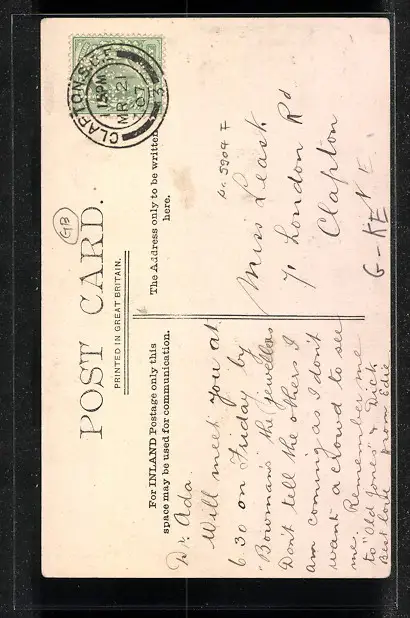 POST CARD.
PRINTED IN GREAT BRITAIN.
GB
For INLAND Postage only this
space may be used for communication.
The Address only to be written
here.
CLAPTON S.O. N.E.
MR 21
07
Dr. Ada.
Will meet you at
6.30 on Friday by
"Bowmans" the Jewellers
Don't tell the others I
am coming as I don't
want a crowd to see
me. Remember me
to "Old Jones" & Dick
Best love from Edie
Miss Leask
71 London Rd
Clapton
N E